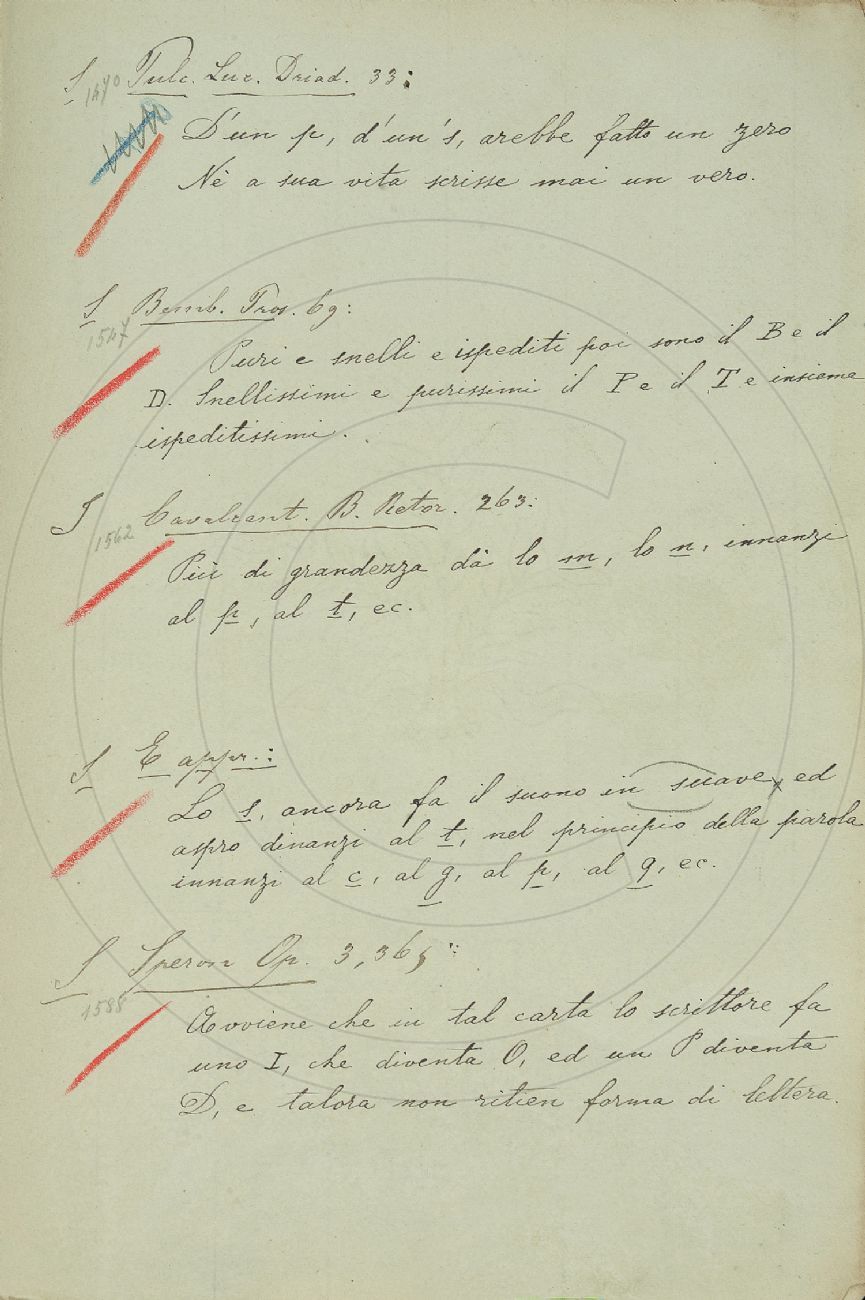 S Pulc. Luc. Driad. 33:
1470
D'un p, d'un s, arebbe fatto un zero
Nè a sua vita scrisse mai un vero.
S Bemb. Pros. 69:
1547
Puri e snelli e ispediti poi sono il B e il
D. Snellissimi e purissimi il P e il T e insieme
ispeditissimi.
S Cavalcant. B. Retor. 263:
1562
Più di grandezza dà lo m, lo n, innanzi
al p, al t, ec.
S E appr.:
Lo s, ancora fa il suono in suave, ed
aspro dinanzi al t, nel principio della parola
innanzi al c, al g, al p, al q, ec.
S Speron Op. 3, 365:
1588
Avviene che in tal carta lo scrittore fa
uno I, che diventa O, ed un P diventa
D, e talora non ritien forma di lettera.